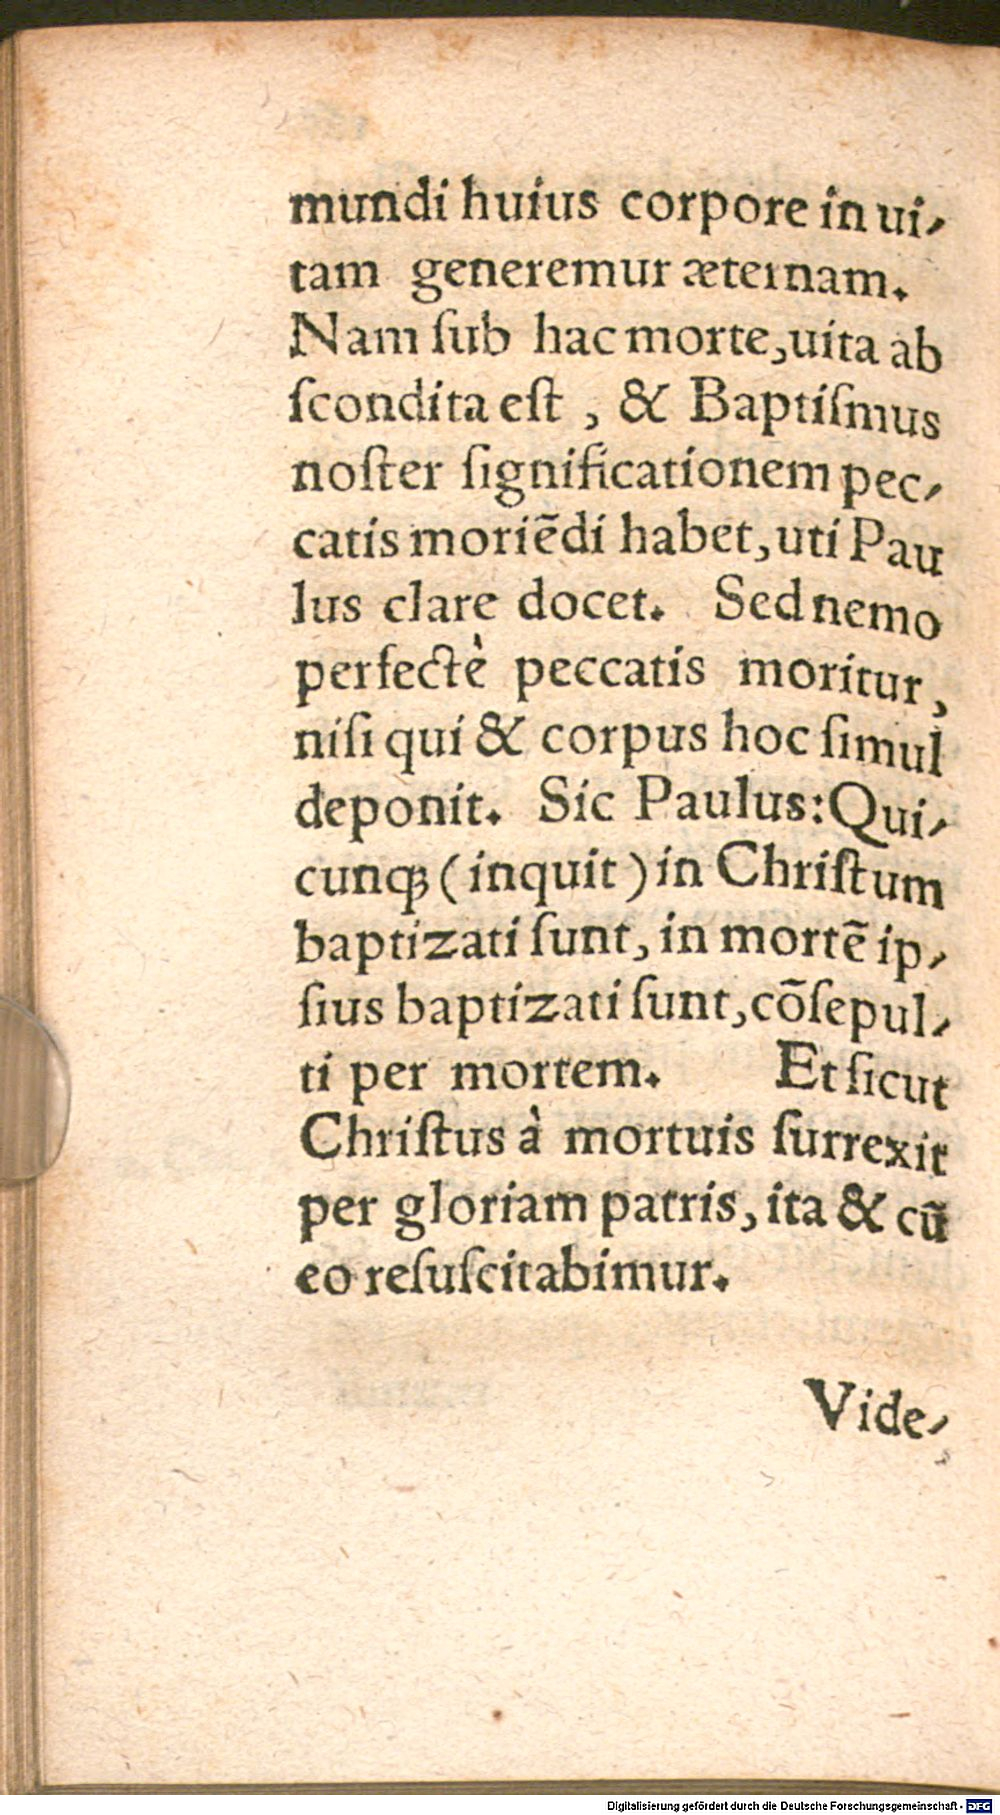 mundi huius corpore in ui-
tam generemur æternam.
Nam ſub hac morte, uita ab
ſcondita eſt , & Baptiſmus
noſter ſignificationem pec-
catis moriēdi habet, uti Pau
lus clare docet. Sed nemo
perfectè peccatis moritur,
niſi qui & corpus hoc ſimul
deponit. Sic Paulus: Qui-
cunqꝫ (inquit) in Chriſtum
baptizati ſunt, in mortē ip-
ſius baptizati ſunt, cōſepul-
ti per mortem. Et ſicut
Chriſtus à mortuis ſurrexit
per gloriam patris, ita & cū
eo reſuſcitabimur.
Vide-
Digitalisierung gefördert durch die Deutsche Forschungsgemeinschaft - DFG